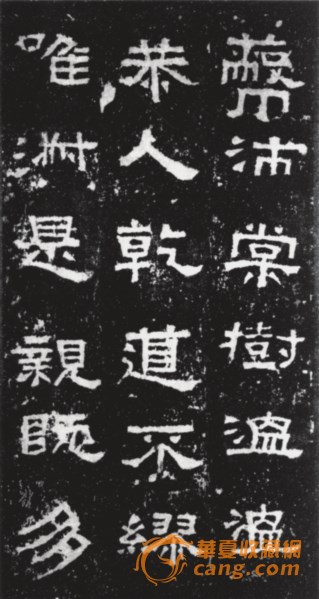 蔽沛棠樹温温
恭人乾道不繆
唯淑是親既多
華夏收藏網
cang.com